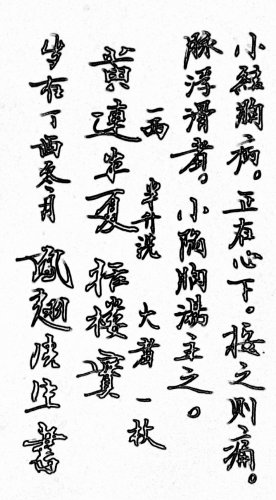 小結胸病。正在心下。按之則痛。
脈浮滑者。小陷胸湯主之。
黃連一兩 半夏半升洗 栝樓實大者一枚
歲在丁酉冬月 生書